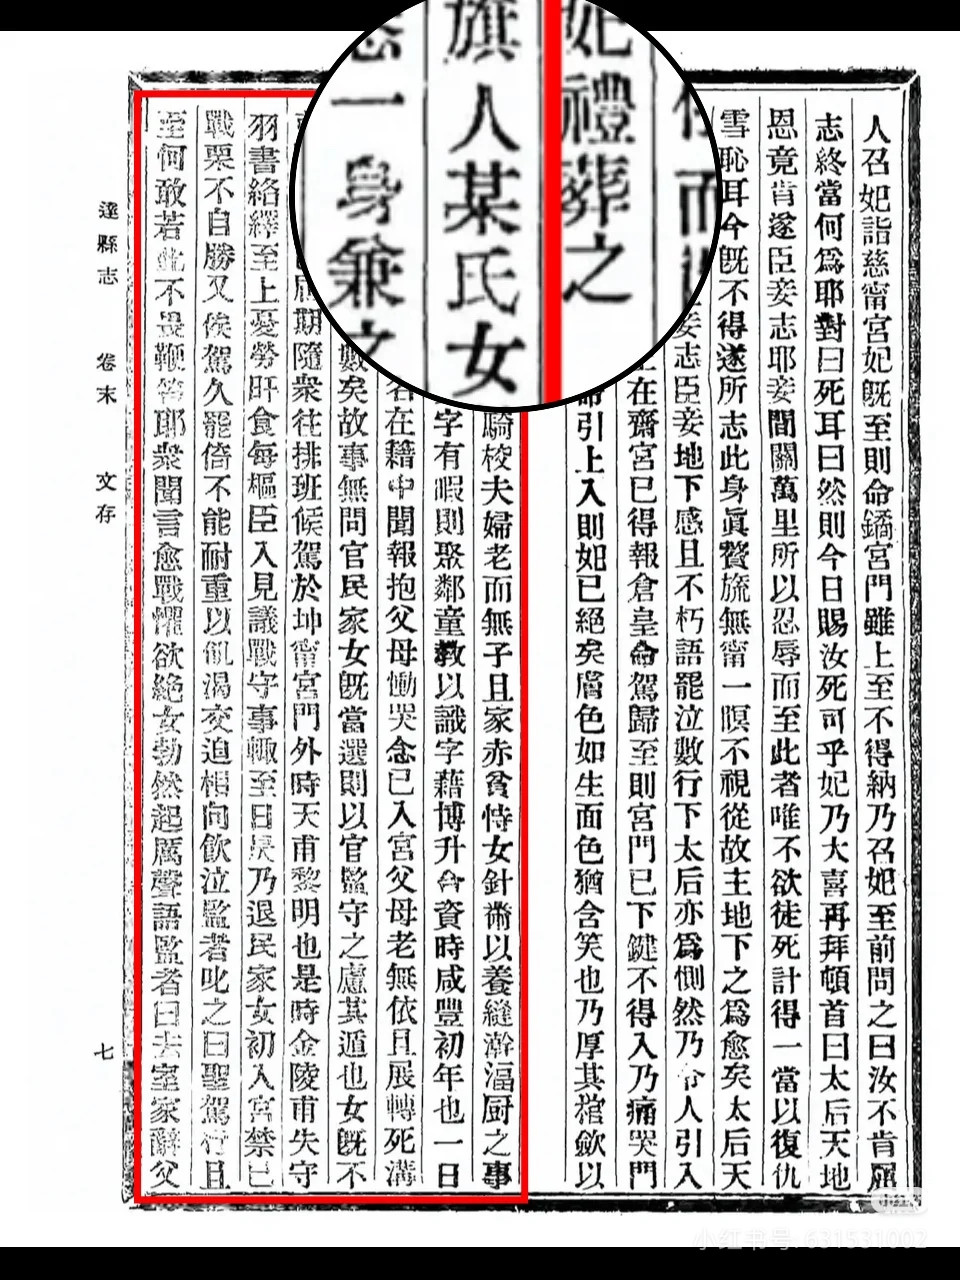 人召妃詣慈甯宮妃旣至則命鐍宮門雖上至不得納乃召妃至前問之曰汝不肯屈
志終當何爲耶對曰死耳曰然則今日賜汝死可乎妃乃大喜再拜頓首曰太后天地
恩竟肯遂臣妾志耶妾間關萬里所以忍辱而至此者唯不欲徒死計得一當以復仇
雪恥耳今旣不得遂所志此身眞贅旒無甯一瞑不視從故主地下之爲愈矣太后天
而
妾志臣妾地下感且不朽語罷泣數行下太后亦爲惻然乃令人引入
上在齋宮已得報倉皇命駕歸至則宮門已下鍵不得入乃痛哭門
命引上入則妃已絕矣膚色如生面色猶含笑也乃厚其棺斂以
妃禮葬之
旗人某氏女
騎校夫婦老而無子且家赤貧恃女針黹以養縫澣湢厨之事
一身兼之
字有暇則聚鄰童教以識字藉博升合資時咸豐初年也一日
名在籍中聞報抱父母慟哭念已入宮父母老無依且展轉死溝
數矣故事無問官民家女旣當選則以官監守之慮其遁也女旣不
屆期隨衆往排班候駕於坤甯宮門外時天甫黎明也是時金陵甫失守
羽書絡繹至上憂勞旰食每樞臣入見議戰守事輒至日昃乃退民家女初入宮禁已
戰栗不自勝又俟駕久罷倚不能耐重以飢渴交迫相向飲泣監者叱之曰聖駕行且
至何敢若此不畏鞭笞耶衆聞言愈戰懼欲絕女勃然起厲聲語監者曰去室家辭父
達縣志 卷末 文存 七
小红书号:631531002